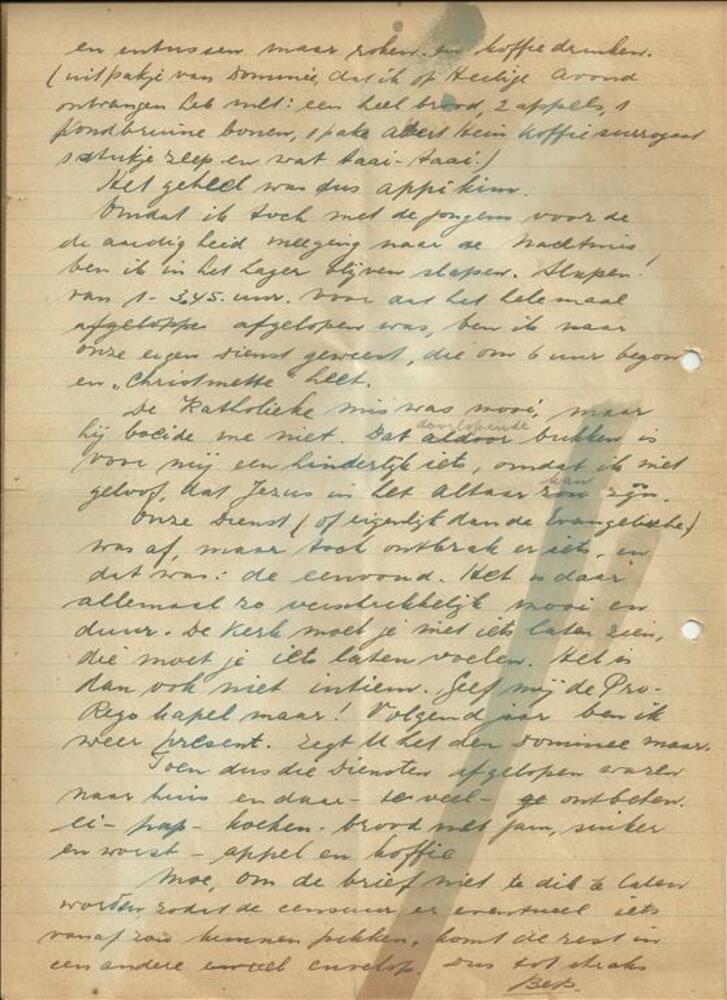 en intussen maar roken en koffie drinken.
(uit pakje van Dominee, dat ik op Heilige Avond
ontvangen heb met: een heel brood, 2 appels, 1
pond bruine bonen, 1 pakje Albert Hein koffiesurrogaat
1 stukje zeep en wat taai-taai!)
Het geheel was dus appi kim.
Omdat ik toch met de jongens voor de
de aardigheid meeging naar de Nachtmis
ben ik in het Lager blijven slapen. Slapen!
van 1 - 3.45. uur. Voor dat het helemaal
afgelopen was, ben ik naar
onze eigen dienst geweest, die om 6 uur begon
en „Christmette" heet.
De Katholieke mis was mooi, maar
hij boeide me niet. Dat aldoor doorlopende bukken is
voor mij een hinderlijk iets, omdat ik niet
geloof, dat Jezus in het Altaar zou kan zijn.
Onze Dienst (of eigenlijk dan de Evangelische)
was af, maar toch ontbrak er iets, en
dat was: de eenvoud. Het is daar
allemaal zo verschrikkelijk mooi en
duur. De Kerk moet je niet iets laten zien,
die moet je iets laten voelen. Het is
dan ook niet intiem. Geef mij de Pro-
Rege kapel maar! Volgend jaar ben ik
weer present. Zegt U het den Dominee maar.
Toen dus die Diensten afgelopen waren
naar huis en daar - te veel - ge ontbeten.
ei - pap - koeken - brood met jam, suiker
en worst - appel en koffie
Moe, om de brief niet te dik te laten
worden zodat de censuur er eventueel iets
vanaf zou kunnen pikken, komt de rest in
een andere envelop. Dus tot straks
Bep.